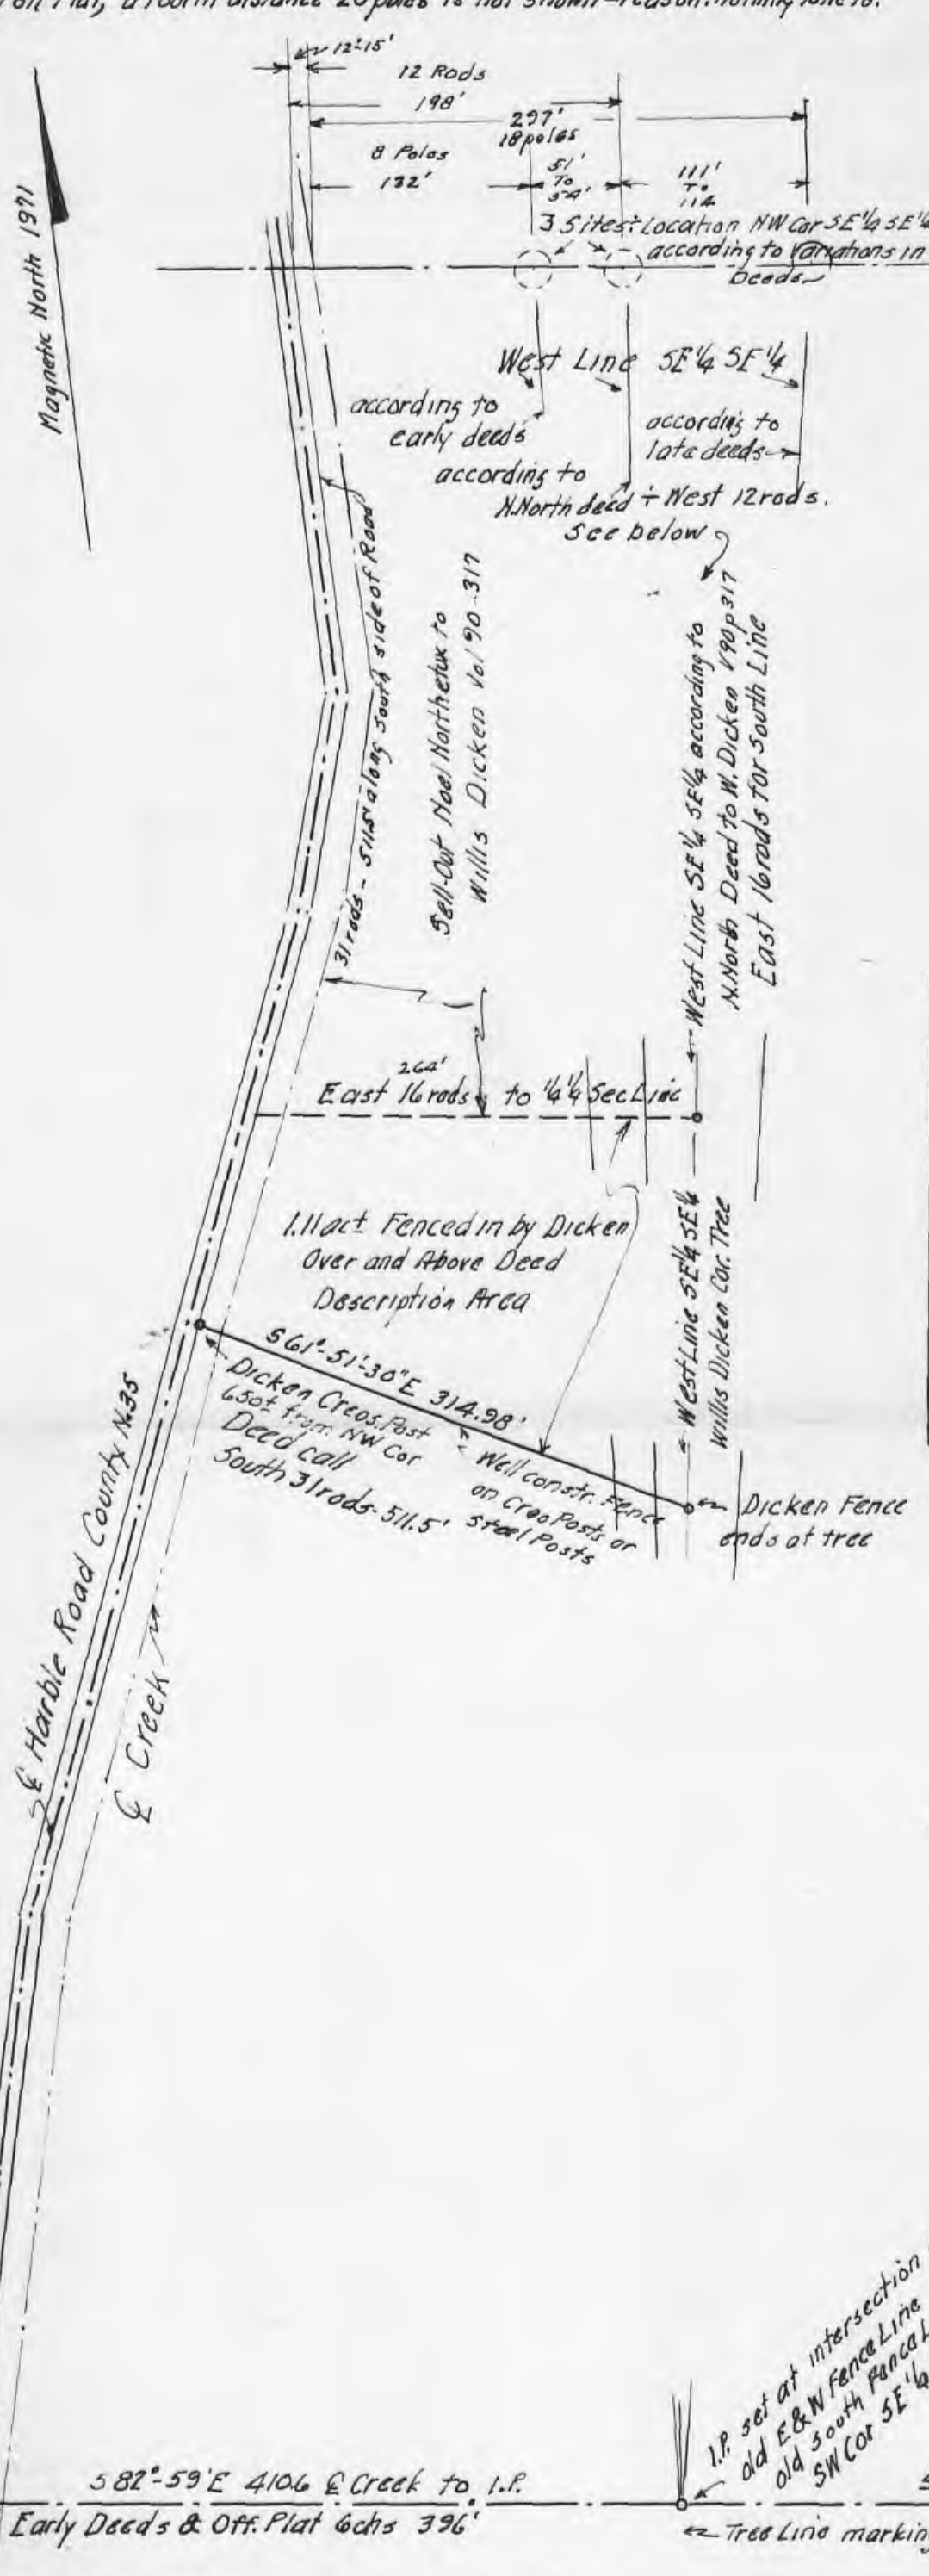 on Plat, a fourth distance 20 poles is not shown - reason: nothing
12'-15'
12 Rods
198'
297'
18 poles
8 Poles
132'
51'
To
54'
111'
To
114
Magnetic North 1971
3 Sites ÷ Location NW Cor SE 1/4 SE 1/4
according to Variations in
Deeds
West Line SE 1/4 SE 1/4
according to
early deeds
according to
late deeds
according to
N. North deed ÷ West 12 rods.
See below
31 rods - 511.5' along South side of Road
Sell-Out Noel North etux to
Willis Dicken Vol 90-317
West Line SE 1/4 SE 1/4 according to
N. North Deed to W. Dicken V90 p317
East 16 rods for South Line
264'
East 16 rods to 1/4 1/4 Sec Line
1.11 ac± Fenced in by Dicken
Over and Above Deed
Description Area
West Line SE 1/4 SE 1/4
Willis Dicken Cor. Tree
S61°-51'-30"E 314.98'
Dicken Creos. Post
650± from NW Cor
Deed call
South 31 rods - 511.5'
Well constr. Fence
on Creo Posts or
Steel Posts
Dicken Fence
ends at tree
℄ Harble Road County No.35
℄ Creek
I.P. set at intersection
old E&W Fence Line
old South Fence L
SW Cor SE 1/4
S82°-59'E 410.6 ℄ Creek to I.P.
Early Deeds & Off. Plat 6chs 396'
Tree Line marking